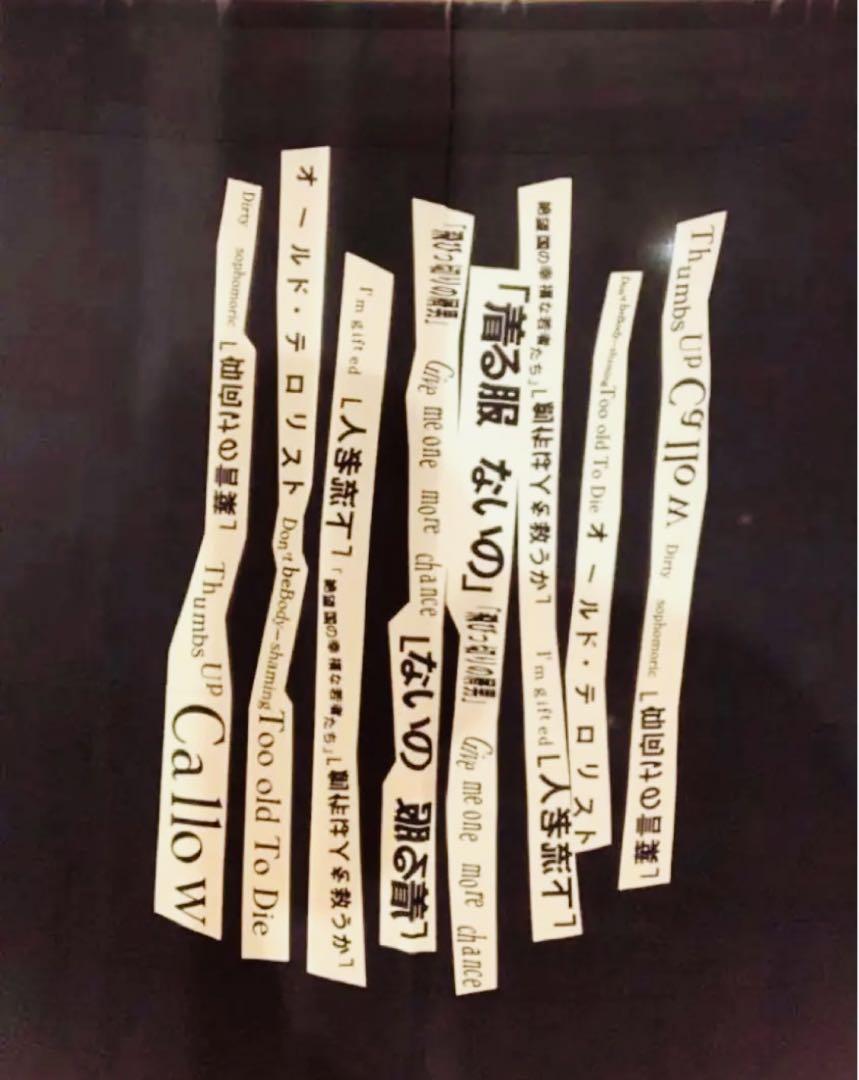 Dirty sophomoric の言葉」 Thumbs UP Callow
オールド・テロリスト Don't beBody-shamingToo old To Die
I'm gifted 「絶望国の幸福な若者たち」 は人を救うか」
Give me one more chance ないの 服る着
「着る服 ないの」 Give me one more chance
絶望国の幸福な若者たち」 は人を救うか」 I'm gifted
Don't beBody-shamingToo old To Die オールド・テロリスト
Thumbs UP Callow Dirty sophomoric の言葉」